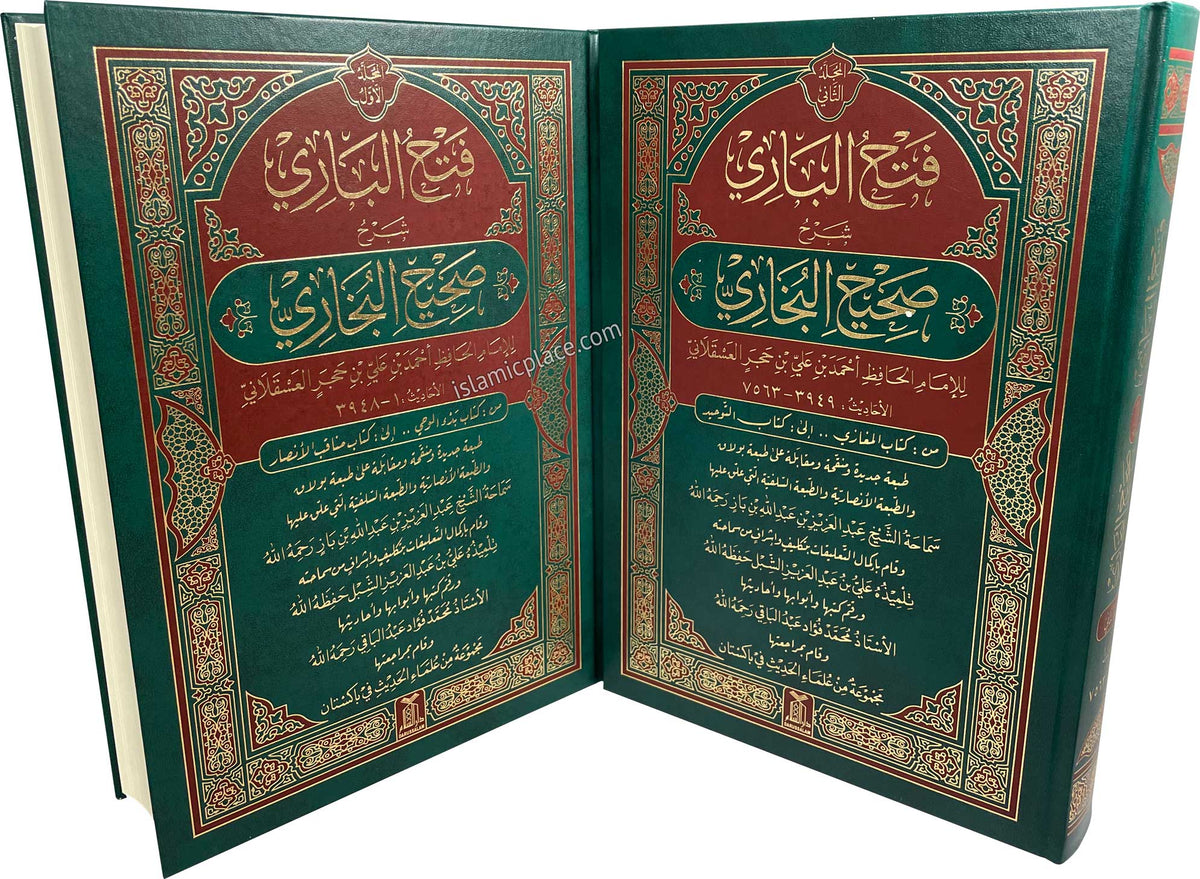 المجلد
الأول
فَتْحُ البَارِي
شَرْحُ
صَحِيْحِ البُخَارِيِّ
لِلإِمَامِ الحَافِظِ أَحْمَدَ بْنِ عَلِيِّ بْنِ حَجَرٍ العَسْقَلَانِيِّ
الأحَادِيْثُ: ١-٣٩٤٨
من: كتاب بدء الوحي .. إلى: كتاب مناقب الأنصار
طبعة جديدة ومنقحة ومقابلة على طبعة بولاق
والطبعة الأنصارية والطبعة السلفية التي علق عليها
سَمَاحَةُ الشَّيْخِ عَبْدِ العَزِيْزِ بْنِ عَبْدِ اللهِ بْنِ بَازٍ رَحِمَهُ اللهُ
وقام بإكمال التعليقات بتكليف وإشراف من سماحته
تِلْمِيْذُهُ عَلِيُّ بْنُ عَبْدِ العَزِيْزِ الشِّبْلُ حَفِظَهُ اللهُ
ورقم كتبها وأبوابها وأحاديثها
الأُسْتَاذُ مُحَمَّدُ فُؤَاد عَبْدُ البَاقِي رَحِمَهُ اللهُ
وقام بمراجعتها
مَجْمُوعَةٌ مِنْ عُلَمَاءِ الحَدِيْثِ فِي بَاكِسْتَان
دار السلام
DARUSSALAM
المجلد
الثاني
فَتْحُ البَارِي
شَرْحُ
صَحِيْحِ البُخَارِيِّ
لِلإِمَامِ الحَافِظِ أَحْمَدَ بْنِ عَلِيِّ بْنِ حَجَرٍ العَسْقَلَانِيِّ
الأحَادِيْثُ: ٣٩٤٩-٧٥٦٣
من: كتاب المغازي .. إلى: كتاب التوحيد
طبعة جديدة ومنقحة ومقابلة على طبعة بولاق
والطبعة الأنصارية والطبعة السلفية التي علق عليها
سَمَاحَةُ الشَّيْخِ عَبْدِ العَزِيْزِ بْنِ عَبْدِ اللهِ بْنِ بَازٍ رَحِمَهُ اللهُ
وقام بإكمال التعليقات بتكليف وإشراف من سماحته
تِلْمِيْذُهُ عَلِيُّ بْنُ عَبْدِ العَزِيْزِ الشِّبْلُ حَفِظَهُ اللهُ
ورقم كتبها وأبوابها وأحاديثها
الأُسْتَاذُ مُحَمَّدُ فُؤَاد عَبْدُ البَاقِي رَحِمَهُ اللهُ
وقام بمراجعتها
مَجْمُوعَةٌ مِنْ عُلَمَاءِ الحَدِيْثِ فِي بَاكِسْتَان
دار السلام
DARUSSALAM
islamicplace.com